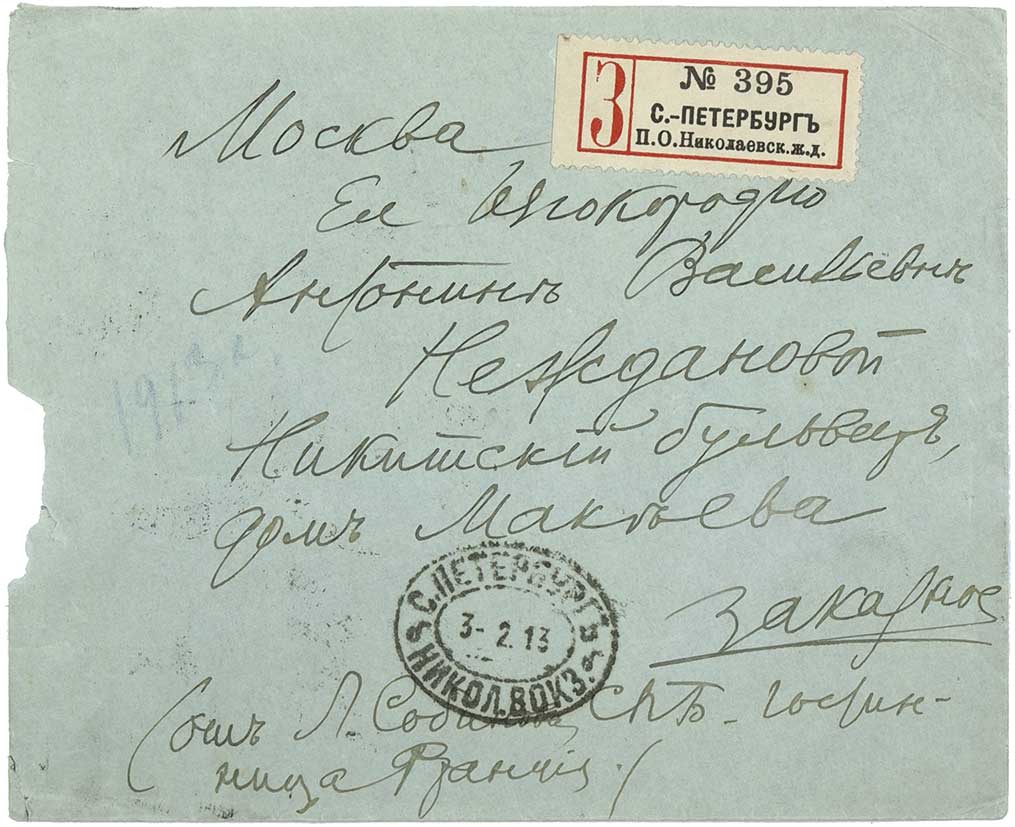 З
№ 395
С.-ПЕТЕРБУРГЪ
П.О.Николаевск.ж.д.
Москва
Ея Высокородію
Антонинѣ Васильевнѣ
Неждановой
Никитскій бульваръ,
домъ Макѣева
Заказное
1913 г.
С.ПЕТЕРБУРГЪ
3- 2.13
НИКОЛ.ВОКЗ.
(отъ Л. Собинова СПБ - гостин-
ница Франція.)